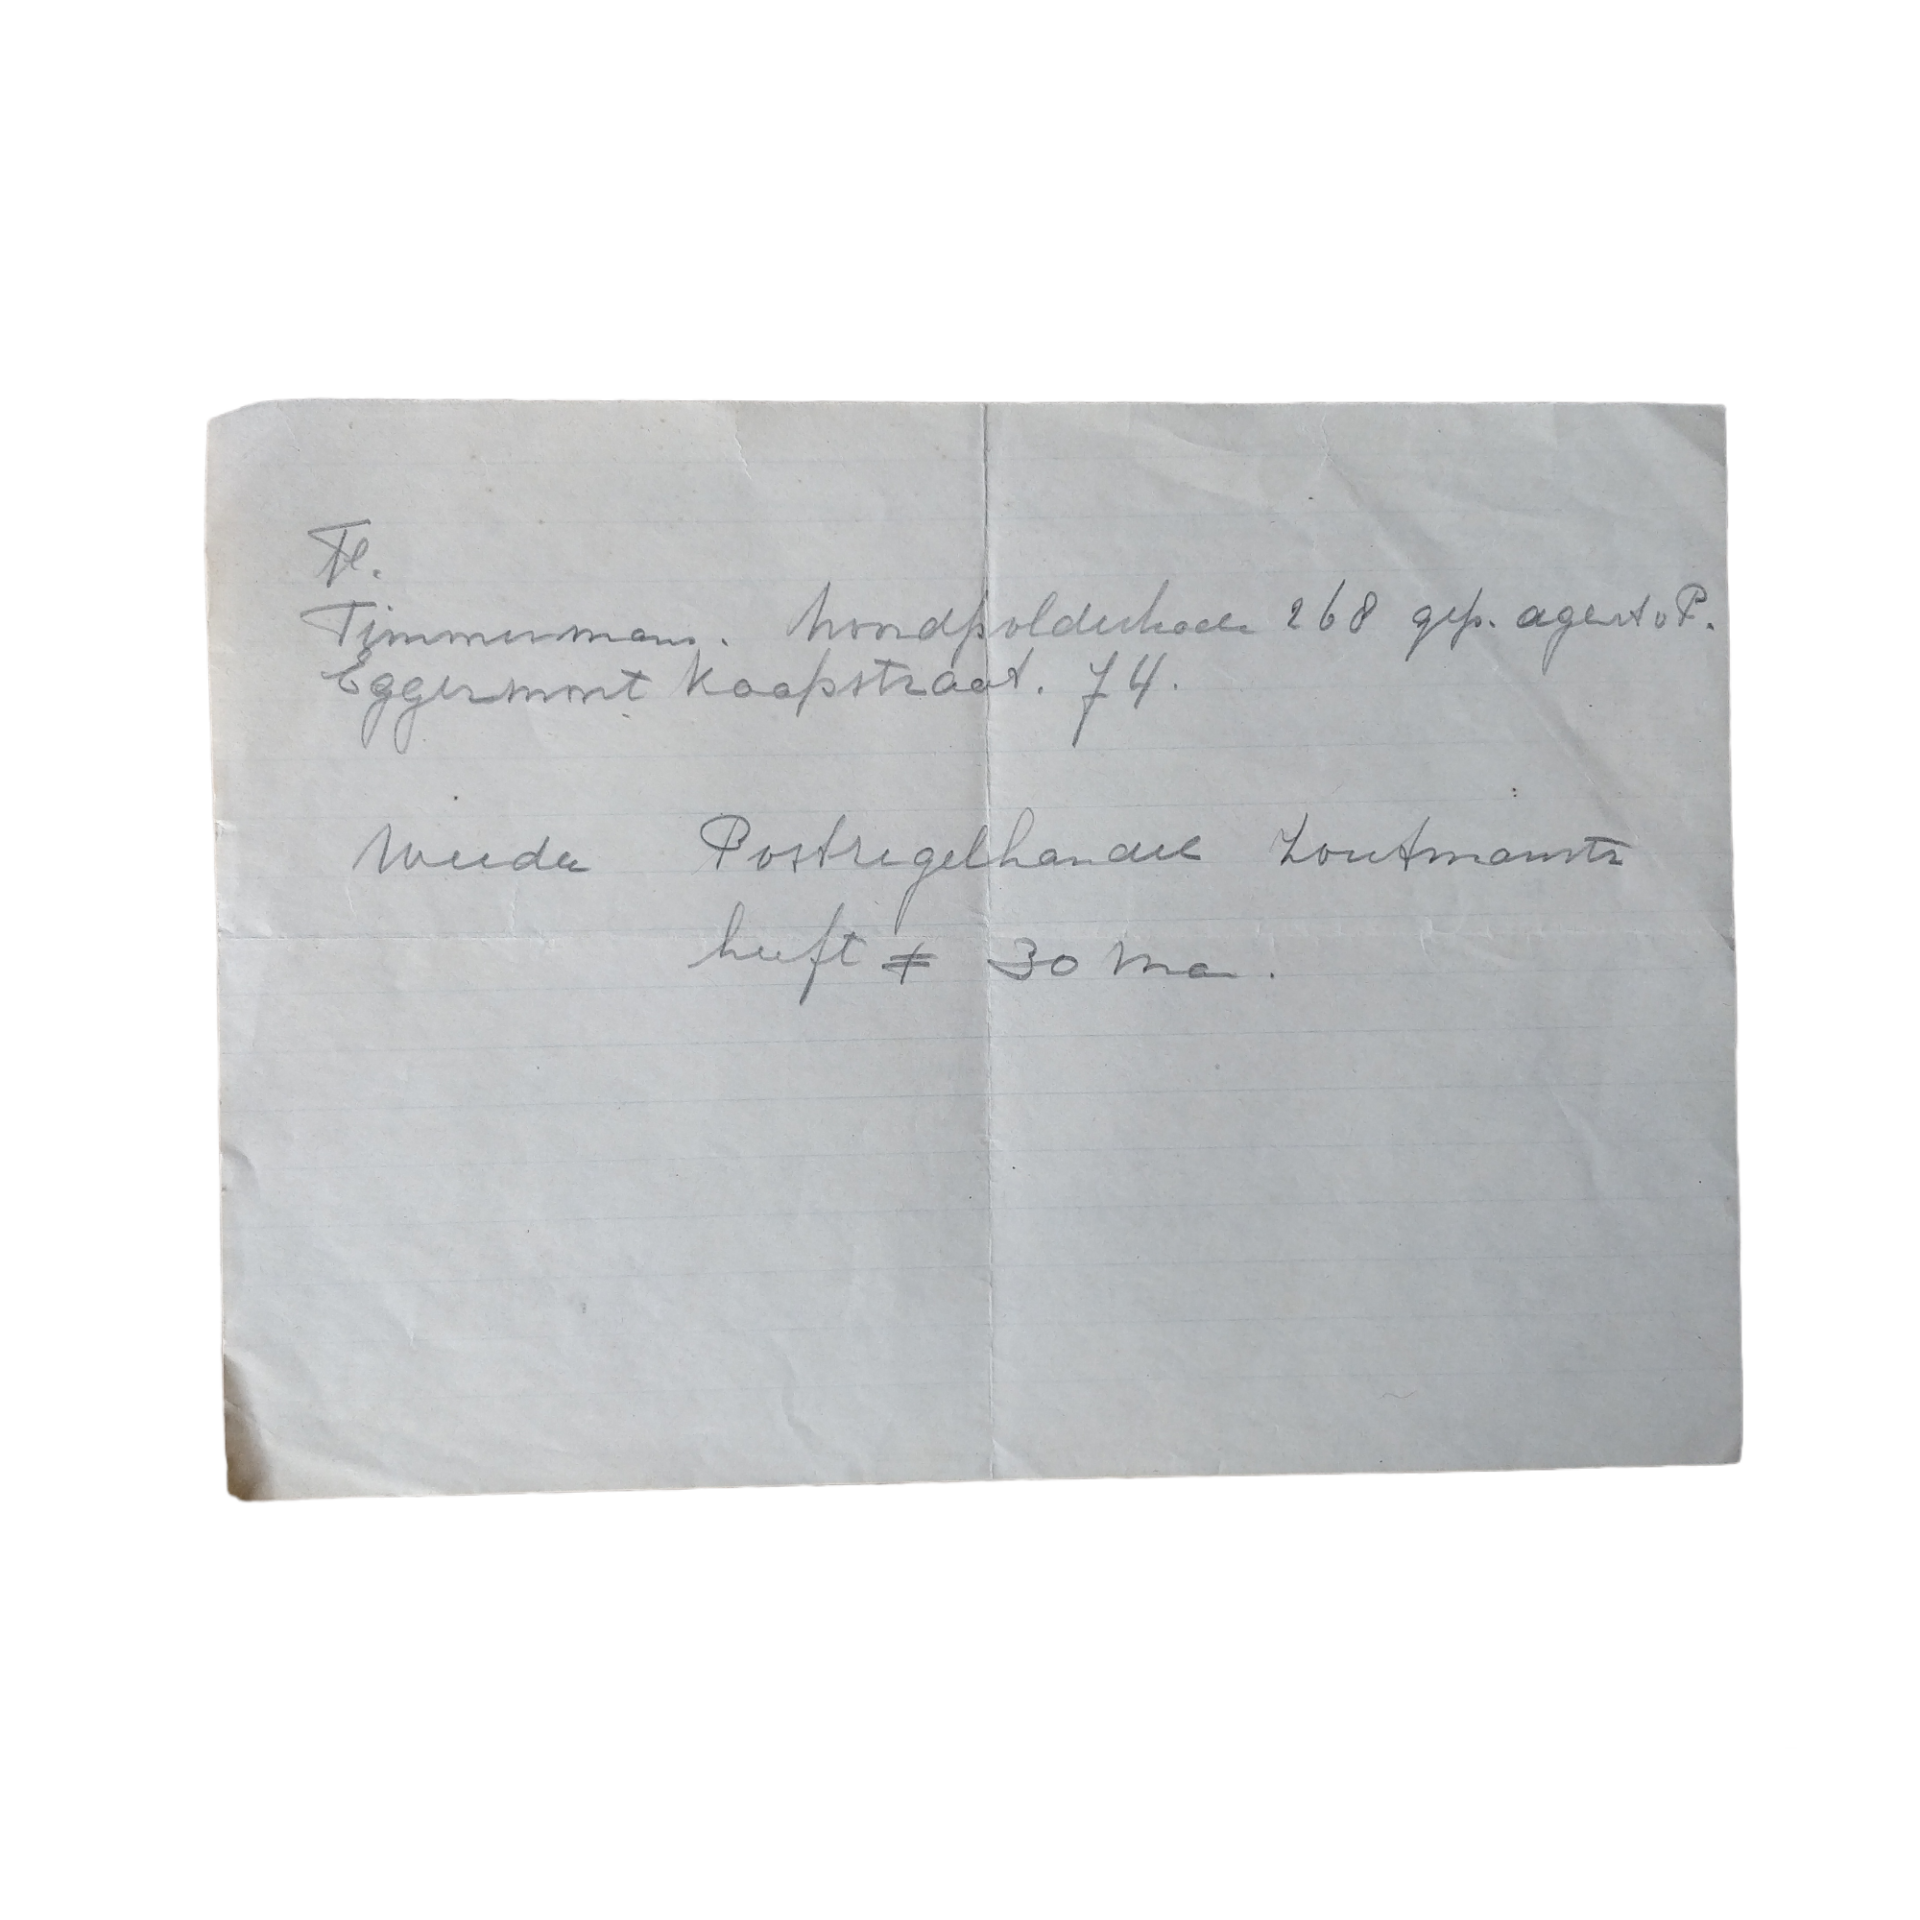 Fl.
Timmermans. Noordpolderkade 268 gep. agent v P.
Eggermont Kaapstraat. 74.
Weeda Postzegelhandel Zoutmanstr
heeft ± 30 Ma .